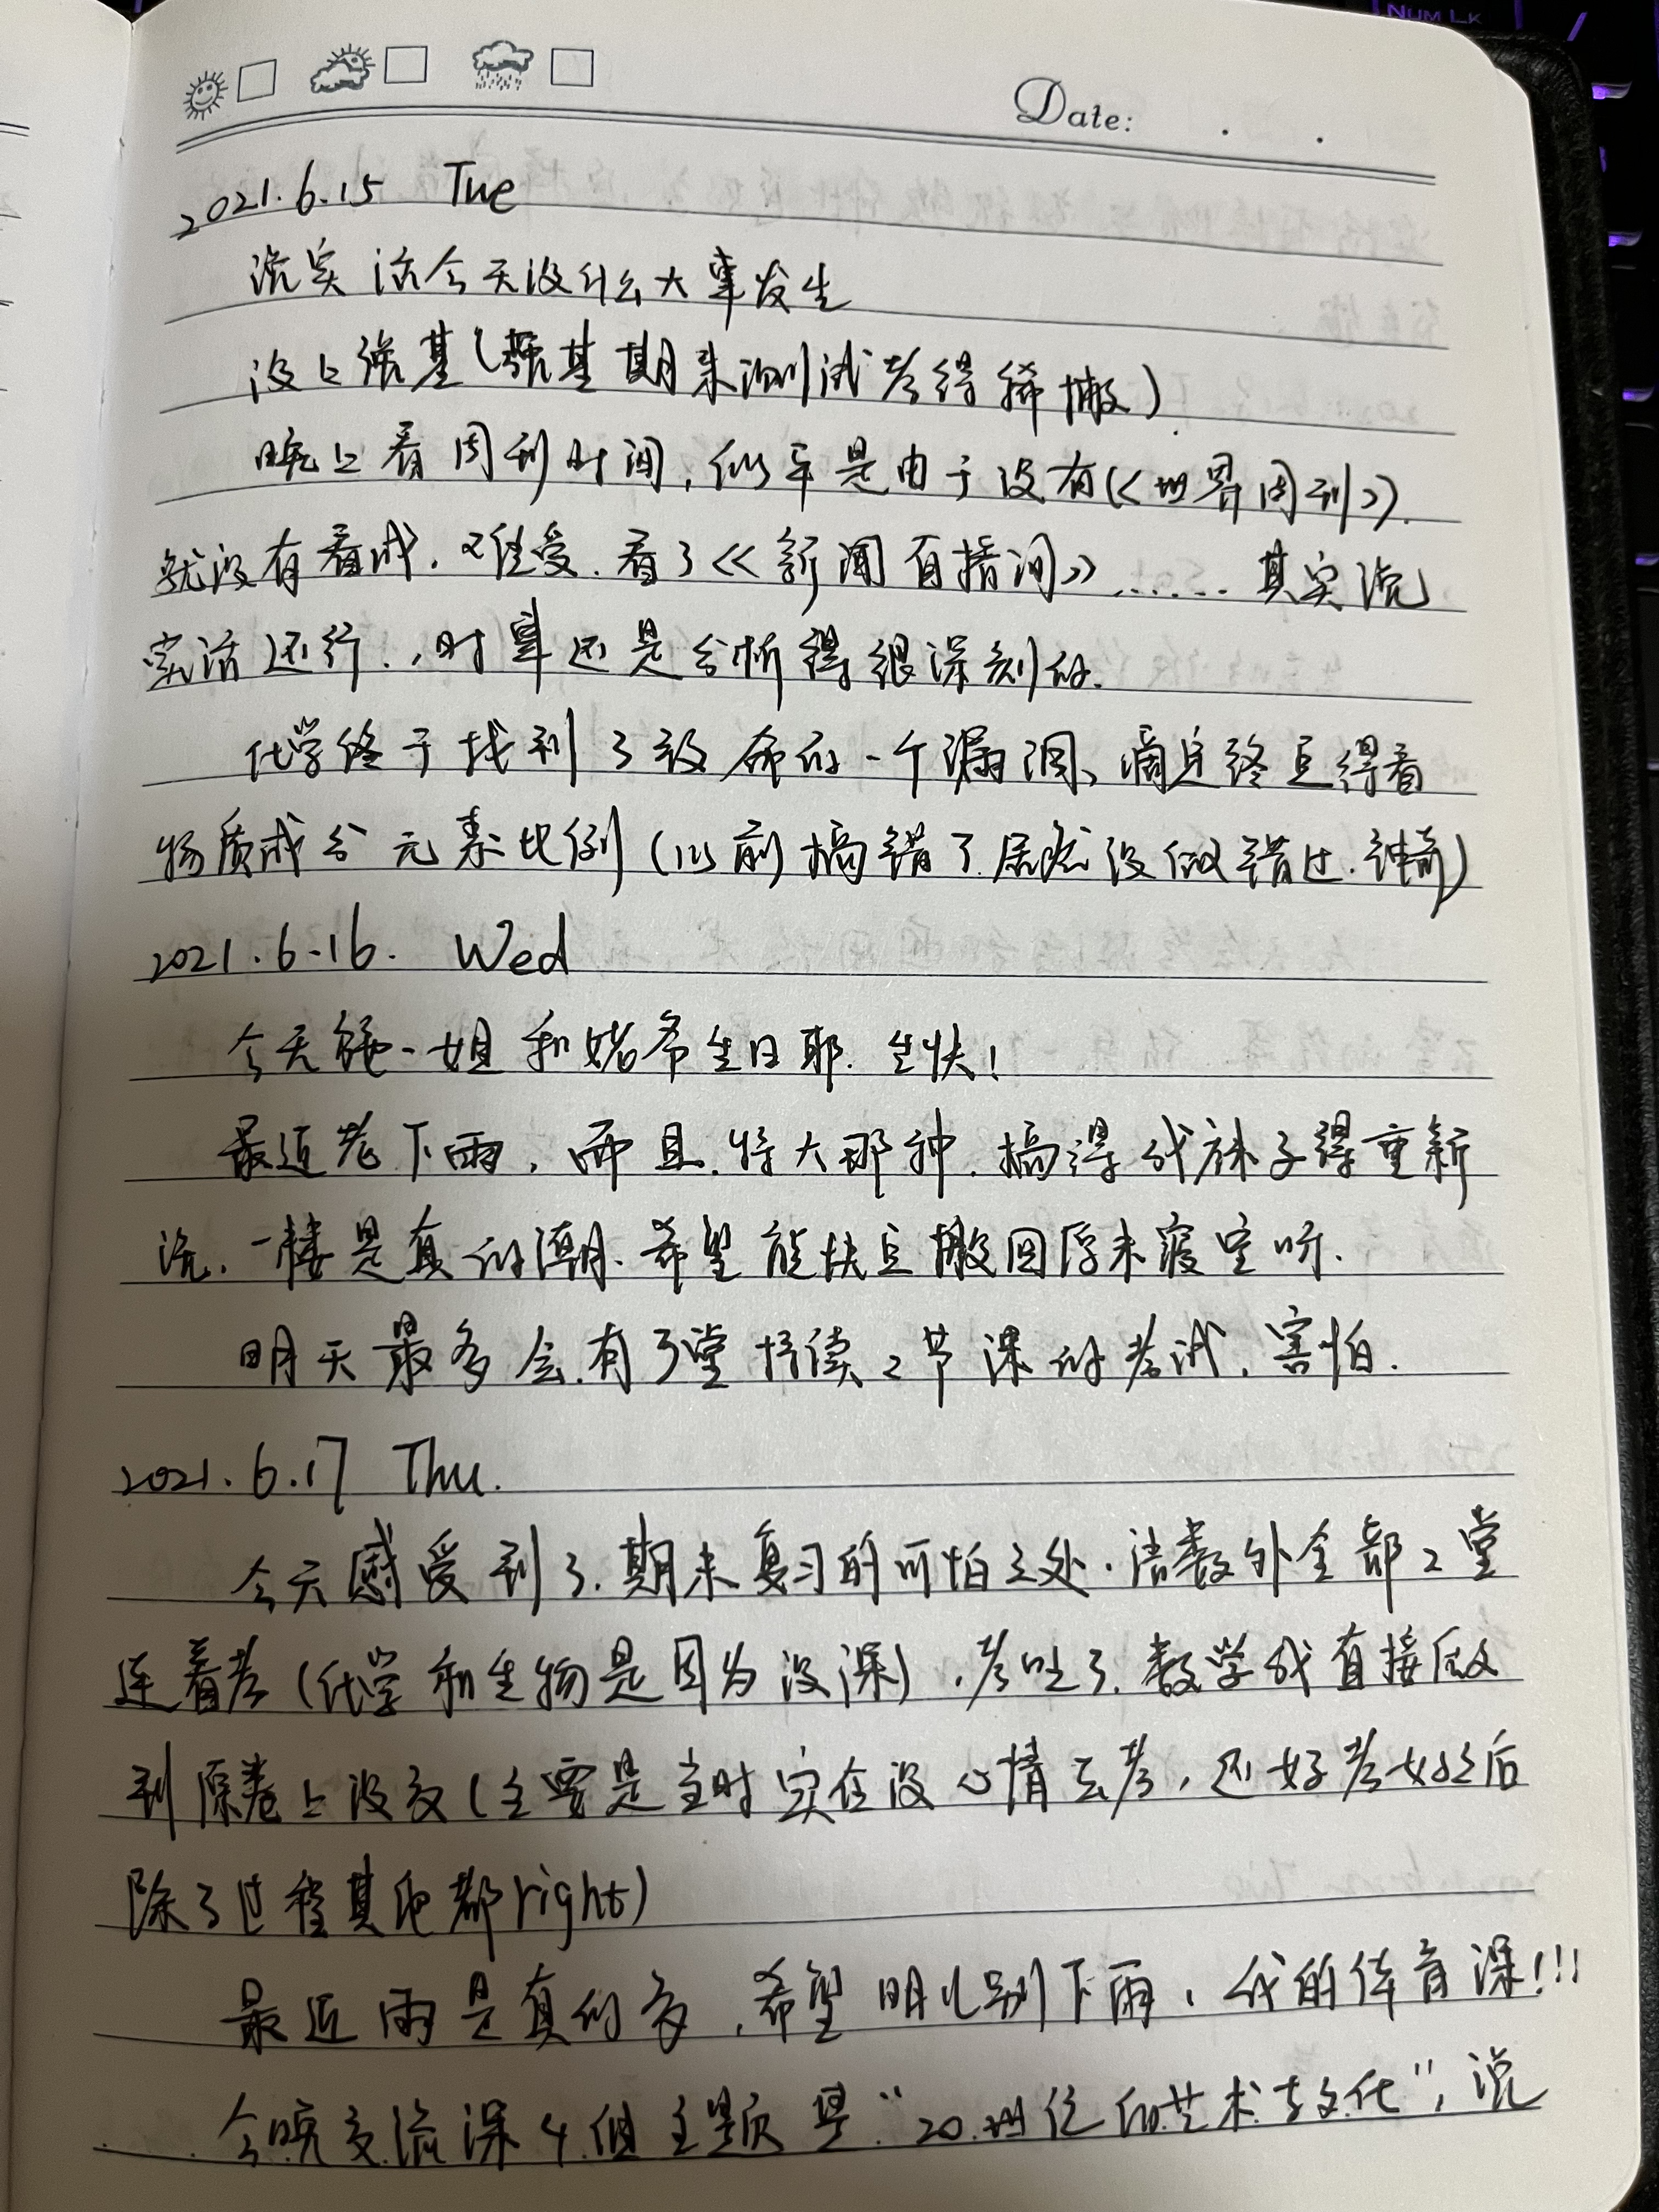 Num Lk
Date: . .
2021.6.15 Tue
说实话今天没什么大事发生
没上强基(强基期末测试考得稀搬)
晚上看周刊时间,似乎是由于没有《世界周刊》.
就没有看成.难受.看了《新闻直播间》...... 其实说
实话还行..,时事还是分析得很深刻的.
化学终于找到了致命的一个漏洞、滴定终点得看
物质成分元素比例(以前搞错了居然没做错过.神奇)
2021.6.16. Wed
今天一姐和婼希生日耶.生快!
最近老下雨,而且.特大那种.搞得我袜子得重新
洗.一楼是真的潮.希望能快点搬回原来寝室呀.
明天最多会有3堂持续2节课的考试.害怕.
2021.6.17 Thu.
今天感受到了.期末复习的可怕之处.语数外全部2堂
连着考(化学和生物是因为没课),考吐了.数学我直接做
到原卷上没交(主要是当时实在没心情去考,还好考好之后
除了过程其他都right)
最近雨是真的多,希望明儿别下雨,我的体育课!!!
今晚交流课4组主题是“20世纪的艺术与文化”,说